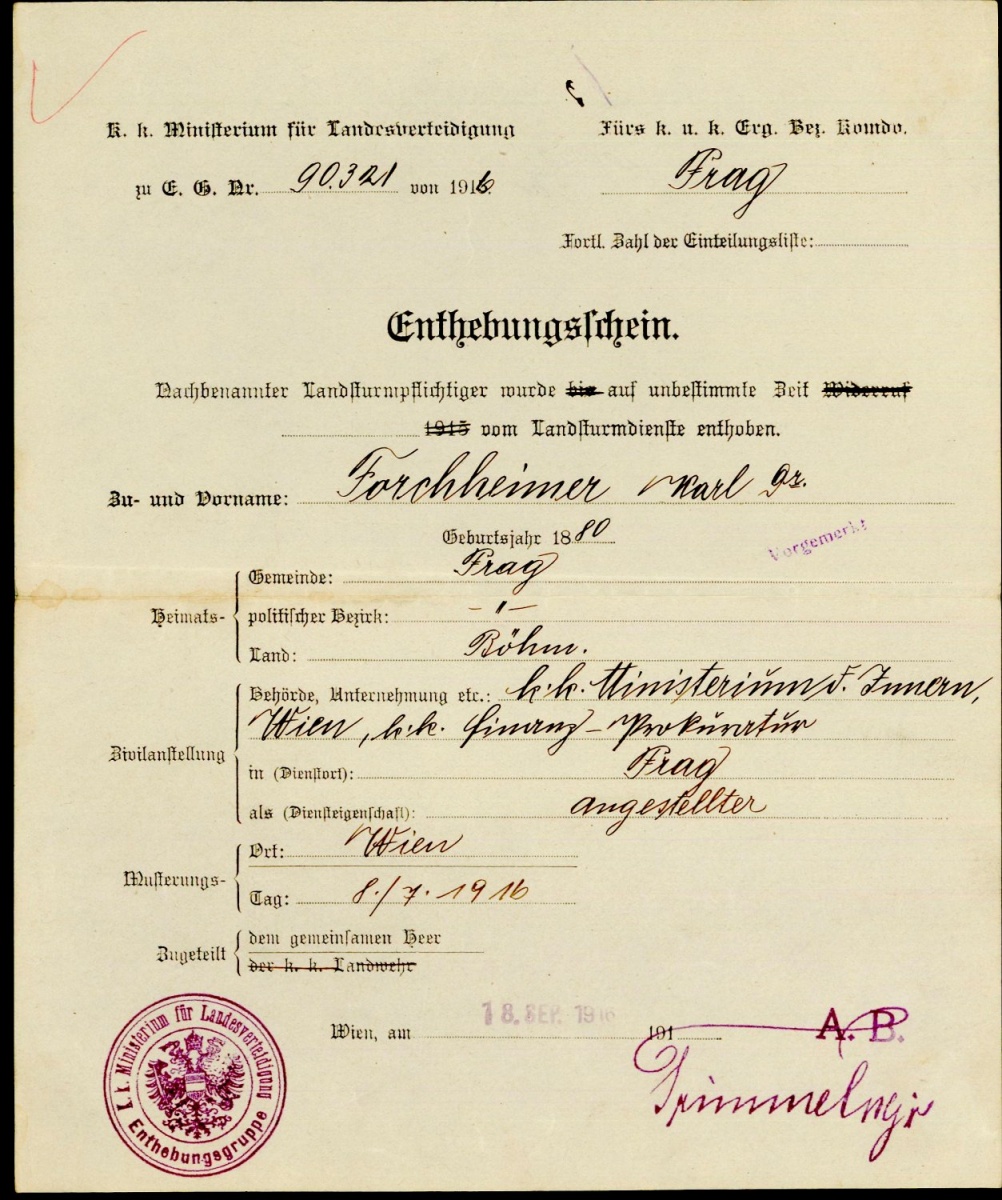 K. k. Ministerium für Landesverteidigung
zu E. G. Nr. 90.321 von 1916
Fürs k. u. k. Erg. Bez. Komdo.
Prag
Fortl. Zahl der Einteilungsliste:
Enthebungsschein.
Nachbenannter Landsturmpflichtiger wurde bis auf unbestimmte Zeit Widerruf
1915 vom Landsturmdienste enthoben.
Zu- und Vorname: Forchheimer Karl Dr.
Geburtsjahr 1880
Vorgemerkt
Heimats-
Gemeinde: Prag
politischer Bezirk: - " -
Land: Böhm.
Zivilanstellung
Behörde, Unternehmung etc.: k. k. Ministerium d. Innern,
Wien, k. k. Finanz-Prokuratur
in (Dienstort): Prag
als (Diensteigenschaft): Angestellter
Musterungs-
Ort: Wien
Tag: 8./7. 1916
Zugeteilt
dem gemeinsamen Heer
der k. k. Landwehr
Wien, am 18. SEP. 1916 191
A. B.
K. k. Ministerium für Landesverteidigung
Enthebungsgruppe